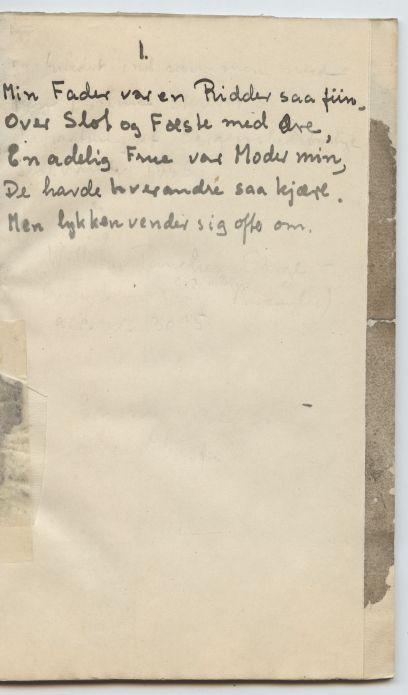 1.
Min Fader var en Ridder saa fiin,
Over Slot og Fæste med Ære,
En adelig Frue var Moder min,
De havde hverandre saa kjære.
Men lykken vender sig ofte om.